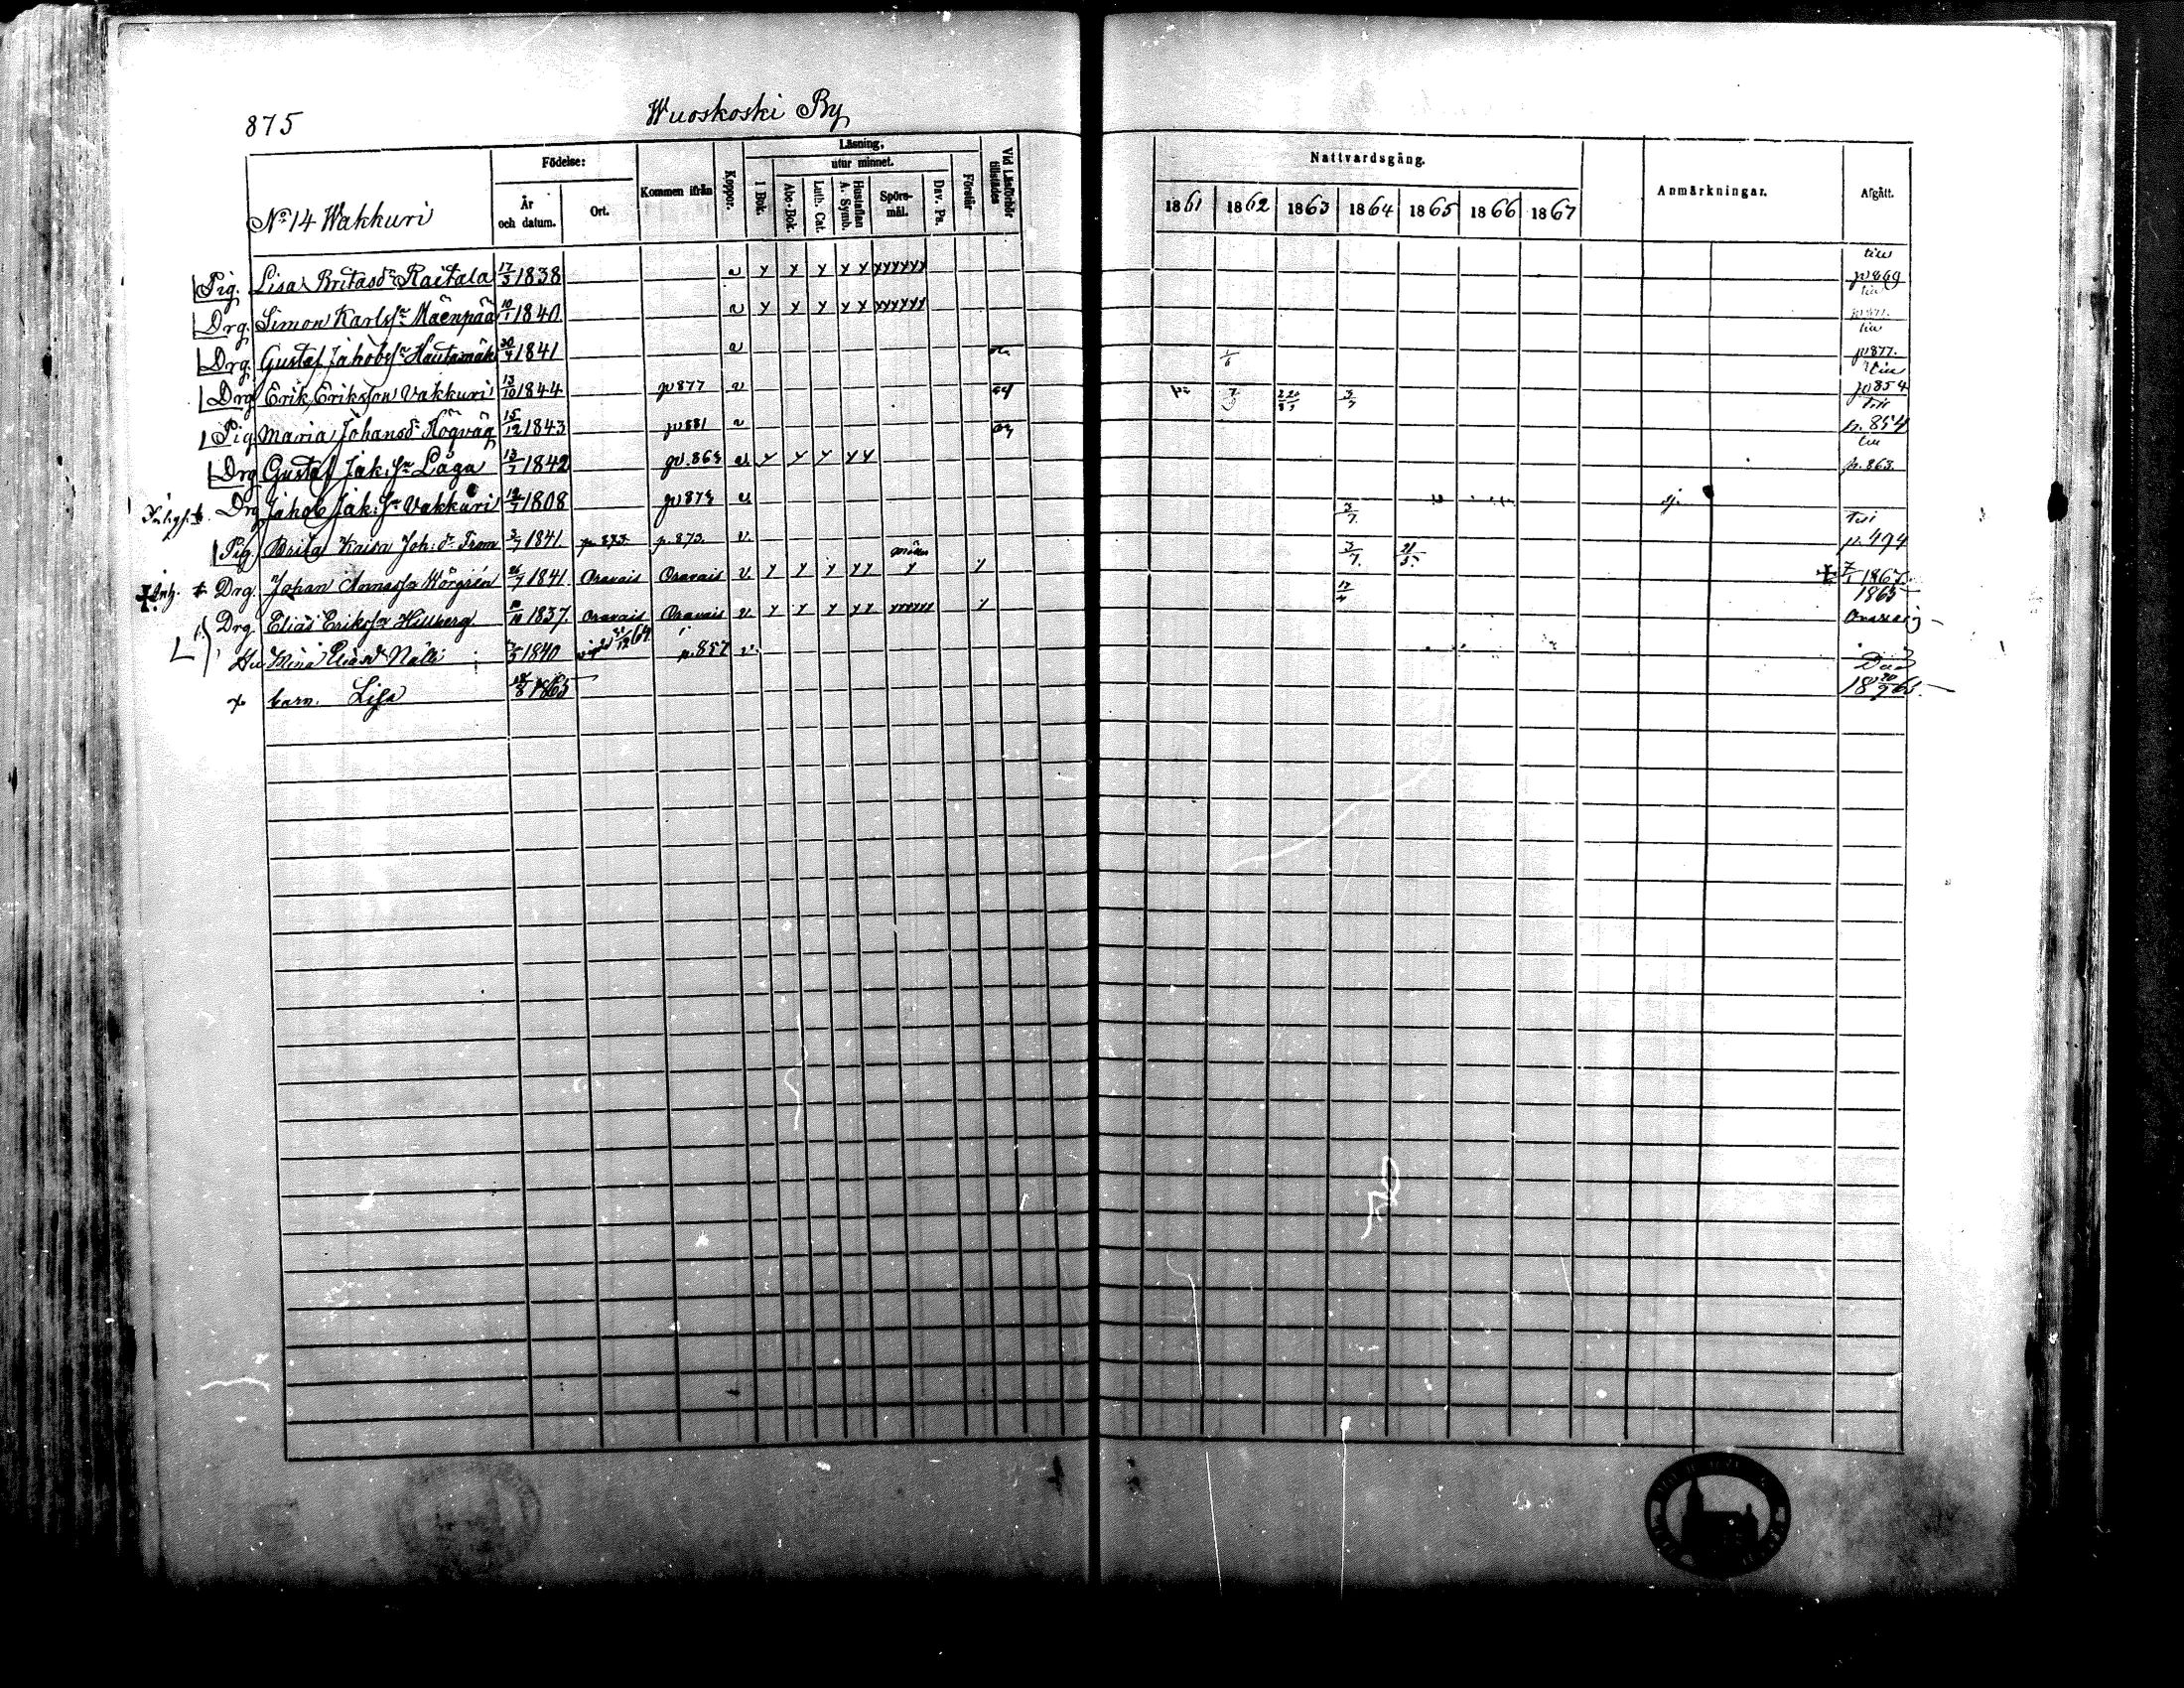 875
Wuoskoski By
No 14 Wakkuri
Födelse:
År och datum.
Ort.
Kommen ifrån
Koppor.
Läsning,
I Bok.
utur minnet.
Abc-Bok.
Luth. Cat.
Hustaflan A. Symb.
Spörs-mål.
Dav. Ps.
Förstår
Vid Läsförhör tillstädes
Nattvardsgång.
1861 1862 1863 1864 1865 1866 1867
Anmärkningar.
Afgått.
Pig. Lisa Britasdr Raitala 17/3 1838 v y y y y y yyyyyy till p 869
Drg. Simon Karlssn Mäenpää 10/1 1840 v y y y y y yyyyyy till
Drg. Gustaf Jakobssn Hautamäki 30/7 1841 v till p 877.
Drg Erik Eriksson Vakkuri 13/10 1844 p 877 v 3/7 till p 854
Pig. Maria Johansdr 15/12 1843 p 881 v till p. 854
Drg Gustaf Jak. sn Låga 13/7 1842 p. 863 v y y y y y till p. 863.
Drg Jakob Jak. sn Vakkuri 1808 p 873 v 3/7
Pig. Brita Kaisa Joh. dr From 3/7 1841 p. 873. p. 873. v. 3/7. till p. 494
Inh. Drg. Johan 26/7 1841 Oravais Oravais v. y y y y y y y 1867
Drg Elias Erikssn Hillberg 10/10 1837. Oravais Oravais v. y y y y y yyyyyy y 1865 Oravais
Hu 1840 p. 857 v. Död
barn. Lisa 1865